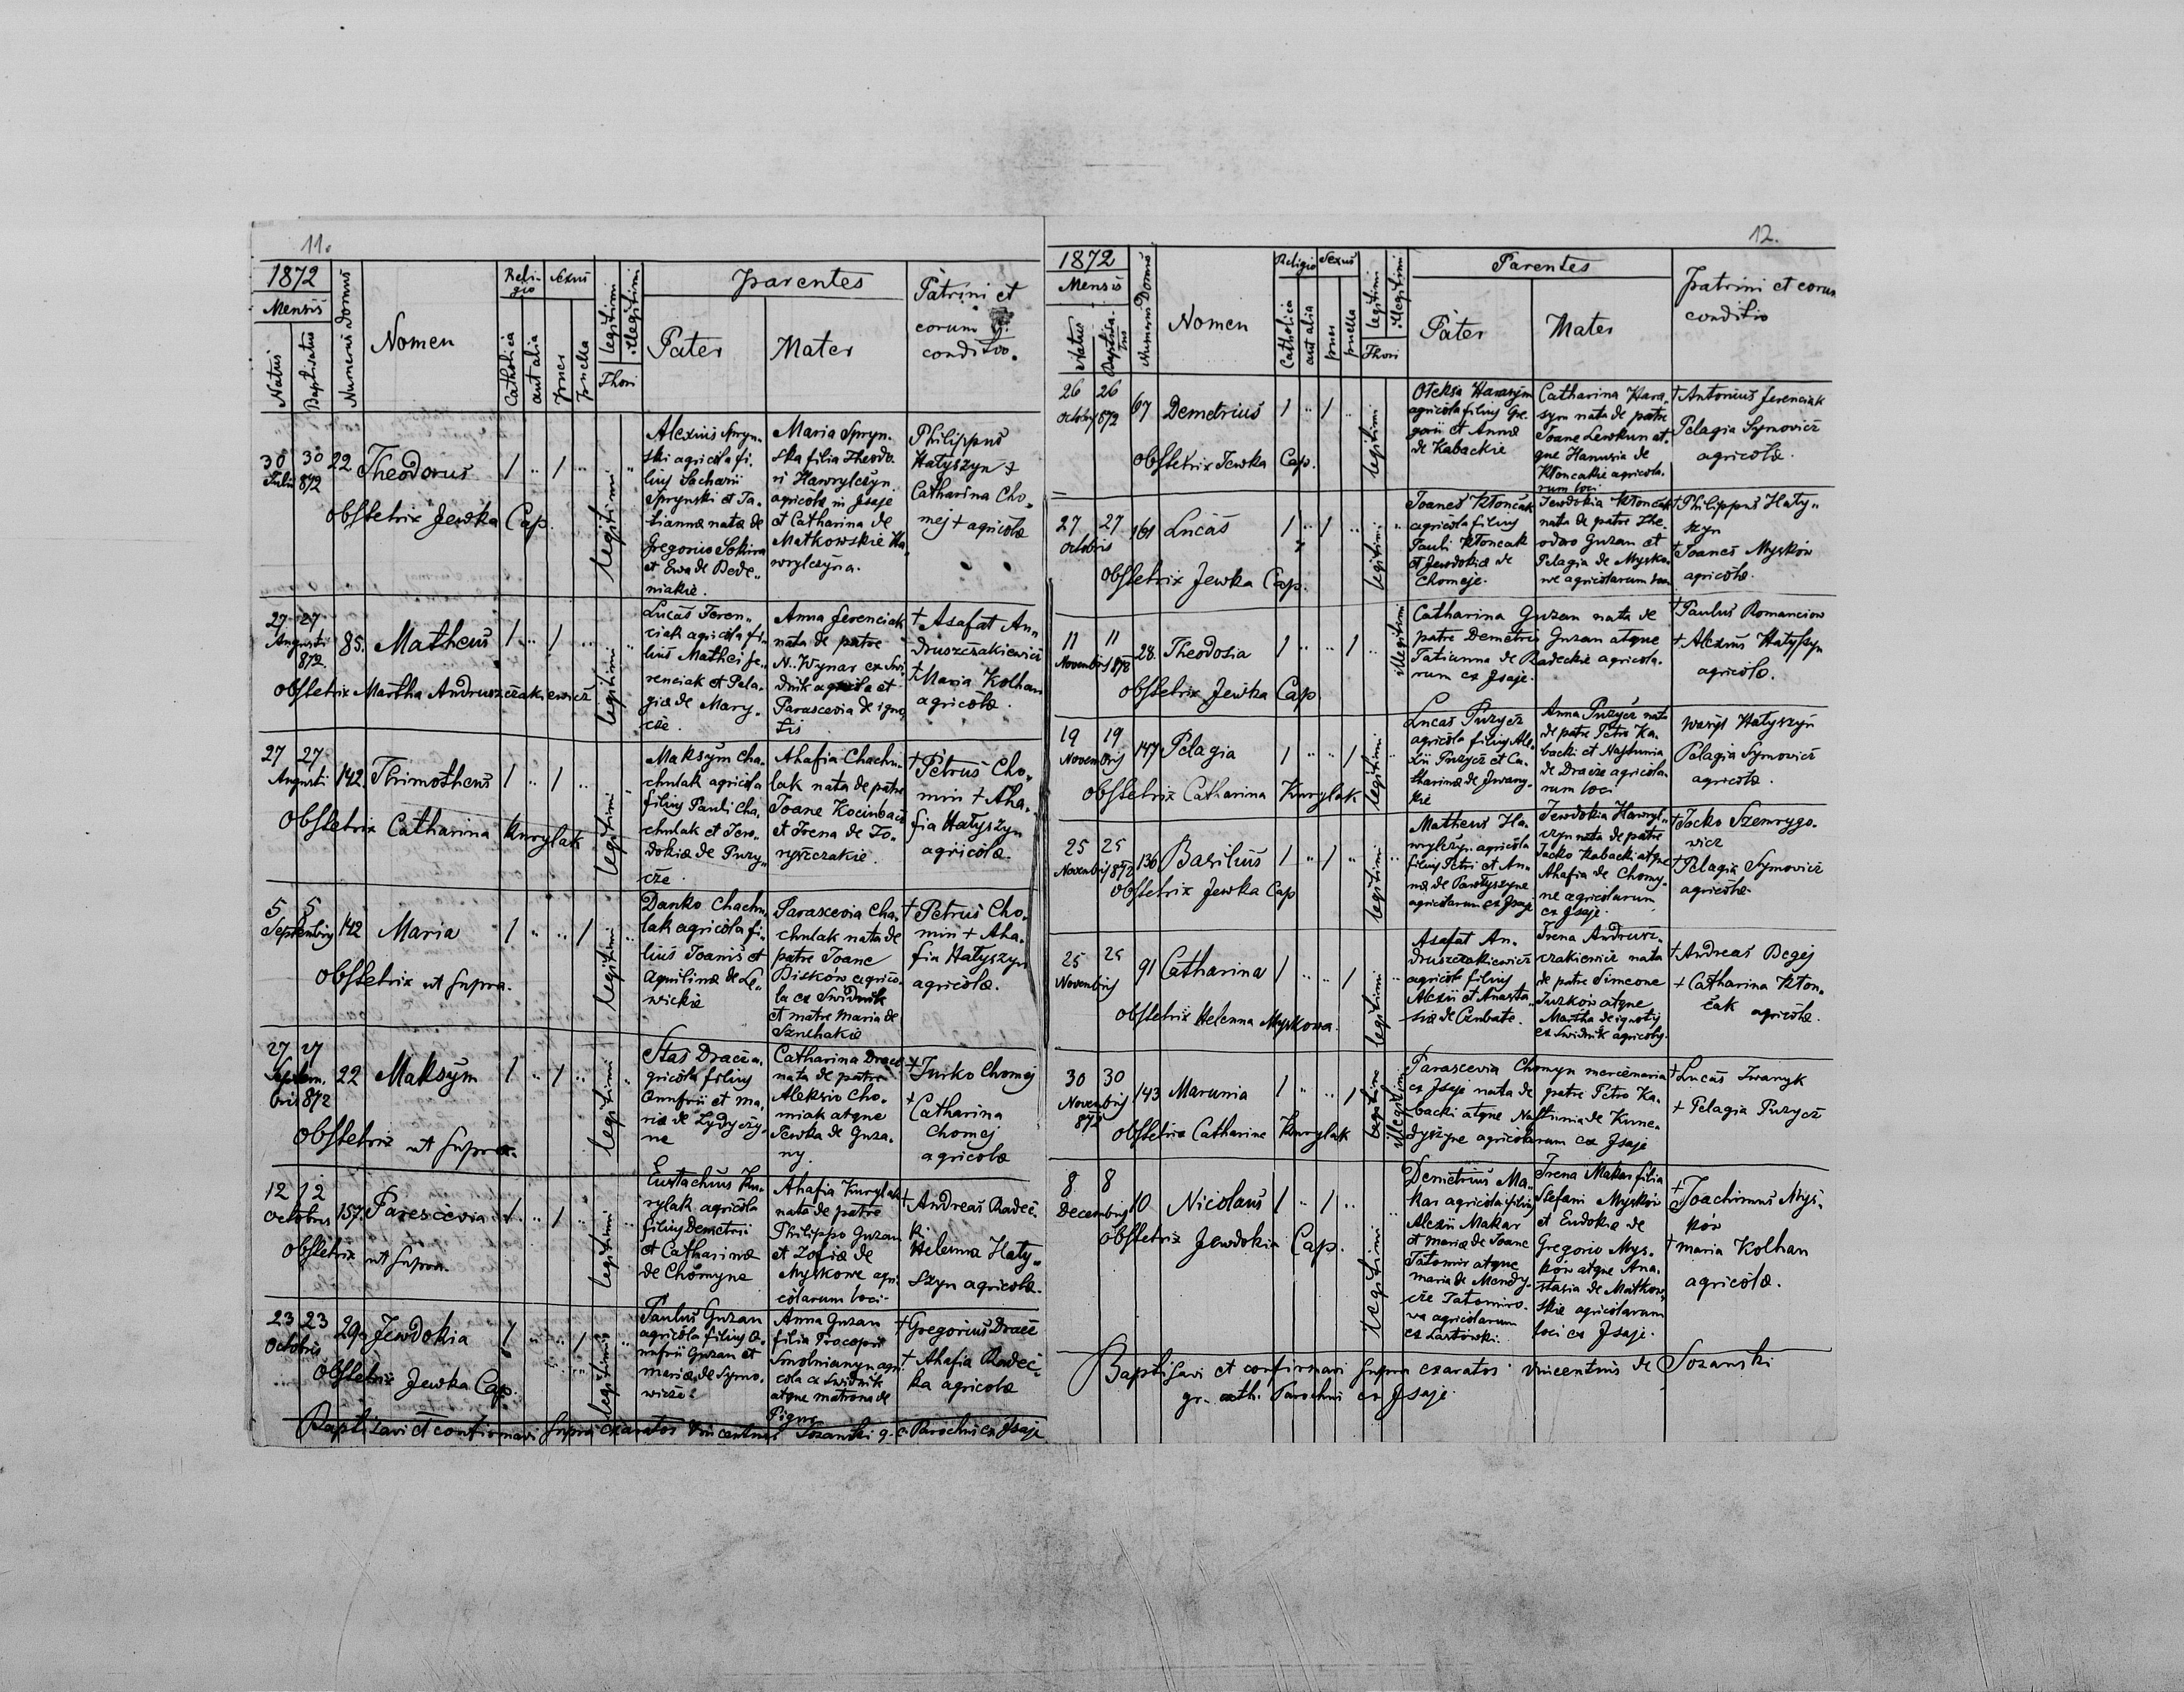 11.
1872
Mensis
Natus
Baptisatus
Numerus Domus
Nomen
Reli-
gio
Catholica
aut alia
Sexus
puer
puella
legitimi
illegitimi
Thori
parentes
Pater
Mater
Patrini et
eorum
conditio.
30 30
Julii 872
22
Theodorus
1 .. 1 ..
legitimi
Alexius Spryn-
ski agricola fi-
lius Zachari
Sprynski et Ta-
tiannæ natæ de
Gregorio Sokira
et Ewa de Bede-
niakie.
Maria Spryn-
ska filia Theodo-
ri Hawrylczyn
agricolæ in Jsaje
et Catharina de
Matkowskie Ha-
wrylczyna.
Philippus
Hatyszyn +
Catharina Cho-
mej + agricolæ
Obstetrix Jewka Cap.
27 27
Augusti
872
85.
Matheus
1 .. 1 ..
legitimi
Lucas Feren-
ciak agricola fi-
lius Mathei Fe-
renciak et Pela-
giæ de Mary-
cze.
Anna Ferenciak
nata de patre
N.. Wynar ex Swi-
dnik agricola et
Parascevia de igno-
tis
+ Asafat An-
druszczakiewicz
+ Maria Kolhan
agricolæ.
Obstetrix Martha Andruszczakiewicz
27 27
Augusti
142.
Thimotheus
1 .. 1 ..
legitimi
Maksym Cha-
chulak agricola
filius Pauli Cha-
chulak et Jew-
dokiæ de Puzy-
cze.
Ahafia Chachu-
lak nata de patre
Joane Kocinbas
et Irena de To-
ryszczakie.
+ Petrus Cho-
min + Aha-
fia Hatyszyn
agricolæ.
Obstetrix Catharina Kurylak
5 5
Septembris
142
Maria
1 .. .. 1
legitimi
Danko Chachu-
lak agricola fi-
lius Joanis et
Aquilinæ de Le-
wickie
Parascevia Cha-
chulak nata de
patre Joane
Diskow agrico-
la ex Swidnik
et matre Maria de
Sznchakie
+ Petrus Cho-
min + Aha-
fia Hatyszyn
agricolæ.
Obstetrix ut supra.
27 27
Septem.
bris 872
22
Maksym
1 .. 1 ..
legitimi
Stas Dracz a-
gricola filius
Onufrii et Ma-
riæ de Zydyczy-
ne
Catharina Dracz
nata de patre
Aleksio Cho-
miak atque
Jewka de Guza-
ny.
+ Jurko Chomej
+ Catharina
Chomej
agricolæ
Obstetrix ut supra.
12 12
Octobris
157.
Parescevia
1 .. 1 ..
legitimi
Eustachius Ku-
rylak agricola
filius Demetrii
et Catharinæ
de Chomyne
Ahafia Kurylak
nata de patre
Philippo Guzan
et Zofiæ de
Myskowe agri-
colarum loci.
+ Andreas Radec-
ki
Helenna Haty-
szyn agricolæ.
Obstetrix ut supra.
23 23
Octobris
29.
Jewdokia
1 .. .. 1
legitimi
Paulus Guzan
agricola filius O-
nufrii Guzan et
Mariæ de Symo-
wicze
Anna Guzan
filia Procopii
Smolnianyn agri-
cola ex Swidnik
atque matrona de
Pigut
+ Gregorius Dracz
+ Ahafia Radec-
ka agricolæ
Obstetrix Jewka Cap.
Baptisavi et confirmavi supra exaratos Vincentius Sozanski g. c. Parochus ex Jsaje
12.
1872
Mensis
Natus
Baptisa-
tus
Numerus Domus
Nomen
Religio
Catholica
aut alia
Sexus
puer
puella
legitimi
illegitimi
Thori
Parentes
Pater
Mater
Patrini et eorum
conditio
26 26
Octobris 872
67
Demetrius
1 .. 1 ..
legitimi
Oleksa Harasym
agricola filius Gre-
gorii et Annæ
de Kabackie
Catharina Hara-
sym nata de patre
Joane Lewkun at-
que Hanusia de
Ktoncakie agricola-
rum loci
+ Antonius Ferenciak
Pelagia Symowicz
agricolæ.
Obstetrix Jewka Cap.
27 27
Octobris
161
Lucas
1 .. 1 ..
legitimi
Joanes Ktoncak
agricola filius
Pauli Ktoncak
et Jewdokiæ de
Chomeje.
Jewdokia Ktoncak
nata de patre The-
odoro Guzan et
Pelagia de Mysko-
we agricolarum loci
+ Philippus Haty-
szyn
+ Joanes Myskow
agricolæ.
Obstetrix Jewka Cap.
11 11
Novembris 872
28.
Theodosia
1 .. .. 1
illegitimi
Catharina Guzan nata de
patre Demetrio Guzan atque
Tatianna de Radeckie agricola-
rum ex Jsaje.
+ Paulus Romanciow
+ Alexius Hatyszyn
agricolæ.
Obstetrix Jewka Cap
19 19
Novembris
147
Pelagia
1 .. .. 1
legitimi
Lucas Puzycz
agricola filius Ale-
xii Puzycz et Ca-
tharinæ de Jwany-
kie
Anna Puzycz nata
de patre Petro Ka-
backi et Nastunia
de Dracze agricola-
rum loci
Wasyl Hatyszyn
Pelagia Symowicz
agricolæ.
Obstetrix Catharina Kurylak
25 25
Novembris 872
136
Basilius
1 .. 1 ..
legitimi
Matheus Ha-
wrylczyn agricola
filius Petri et An-
næ de Pawtyszyne
agricolarum ex Jsaje
Jewdokia Hawryl-
czyn nata de patre
Jacko Kabacki atque
Ahafia de Chomy-
ne agricolarum
ex Jsaje.
+ Jacko Szemrygo-
wicz
+ Pelagia Symowicz
agricolæ.
Obstetrix Jewka Cap
25 25
Novembris
91
Catharina
1 .. .. 1
legitimi
Asafat An-
druszczakiewicz
agricola filius
Alexii et Anasta-
siæ de Czubate.
Irena Andrusz-
czakiewicz nata
de patre Simeone
Jurkow atque
Martha de ignotis
ex Swidnik agricolis.
+ Andreas Begej
+ Catharina Kton-
cak agricolæ.
Obstetrix Helenna Myskowa.
30 30
Novembris
872
143
Marunia
1 .. .. 1
legitimi
illegitimi
Parascevia Chomyn mercenaria
ex Jsaje nata de patre Petro Ka-
backi atque Nastunia de Kune-
dyszyne agricolarum ex Jsaje
+ Lucas Iwanyk
+ Pelagia Puzycz
Obstetrix Catharina Kurylak
8 8
Decembris
10
Nicolaus
1 .. 1 ..
legitimi
Demetrius Ma-
kar agricola filius
Alexii Makar
et Mariæ de Joane
Tatomir atque
Maria de Mendy-
cze Tatomiro-
wa agricolarum
ex Lastowki.
Irena Makar filia
Stefani Myskow
et Eudokiæ de
Gregorio Mys-
kow atque Ana-
stasia de Matkow-
skie agricolarum
loci ex Jsaje.
+ Joachimus Mys-
kow
+ Maria Kolhan
agricolæ.
Obstetrix Jewdokia Cap.
Baptisavi et confirmavi supra exaratos Vincentius de Sozanski
gr. cath. Parochus ex Jsaje.